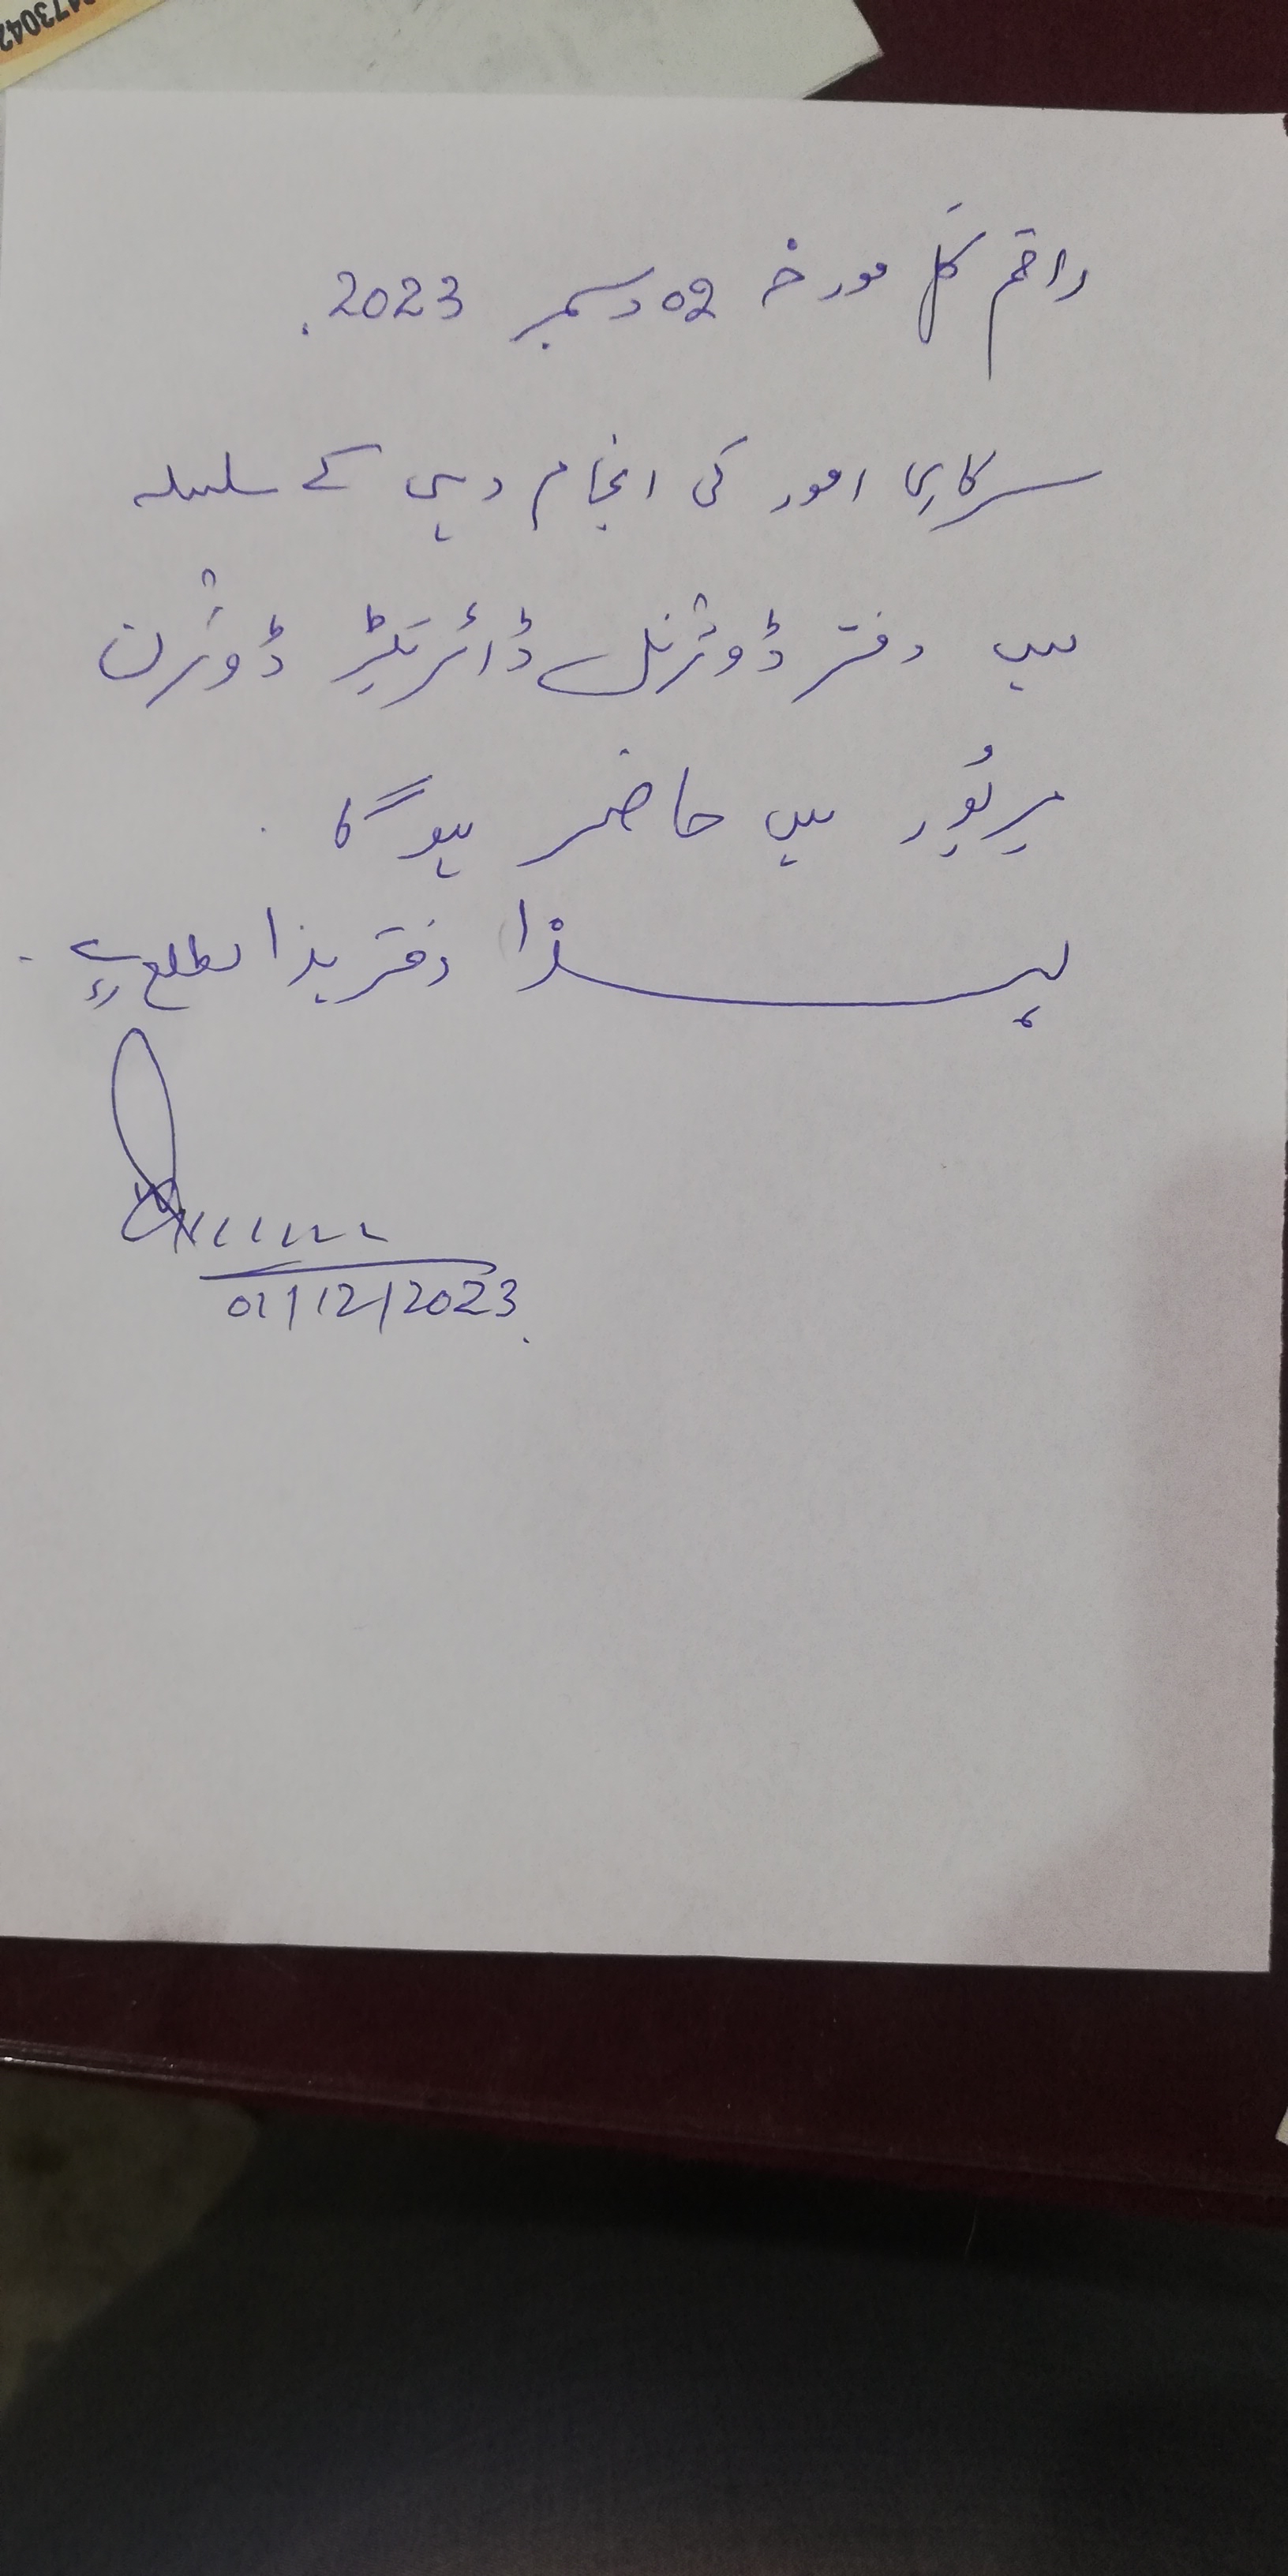 راقم کل مورخہ 02 دسمبر 2023.
سرکاری امور کی انجام دہی کے سلسلہ
میں دفتر ڈویژنل ڈائریکٹر ڈویژن
میرپور میں حاضر ہوگا
لہذا دفتر ہذا مطلع رہے۔
01/12/2023.